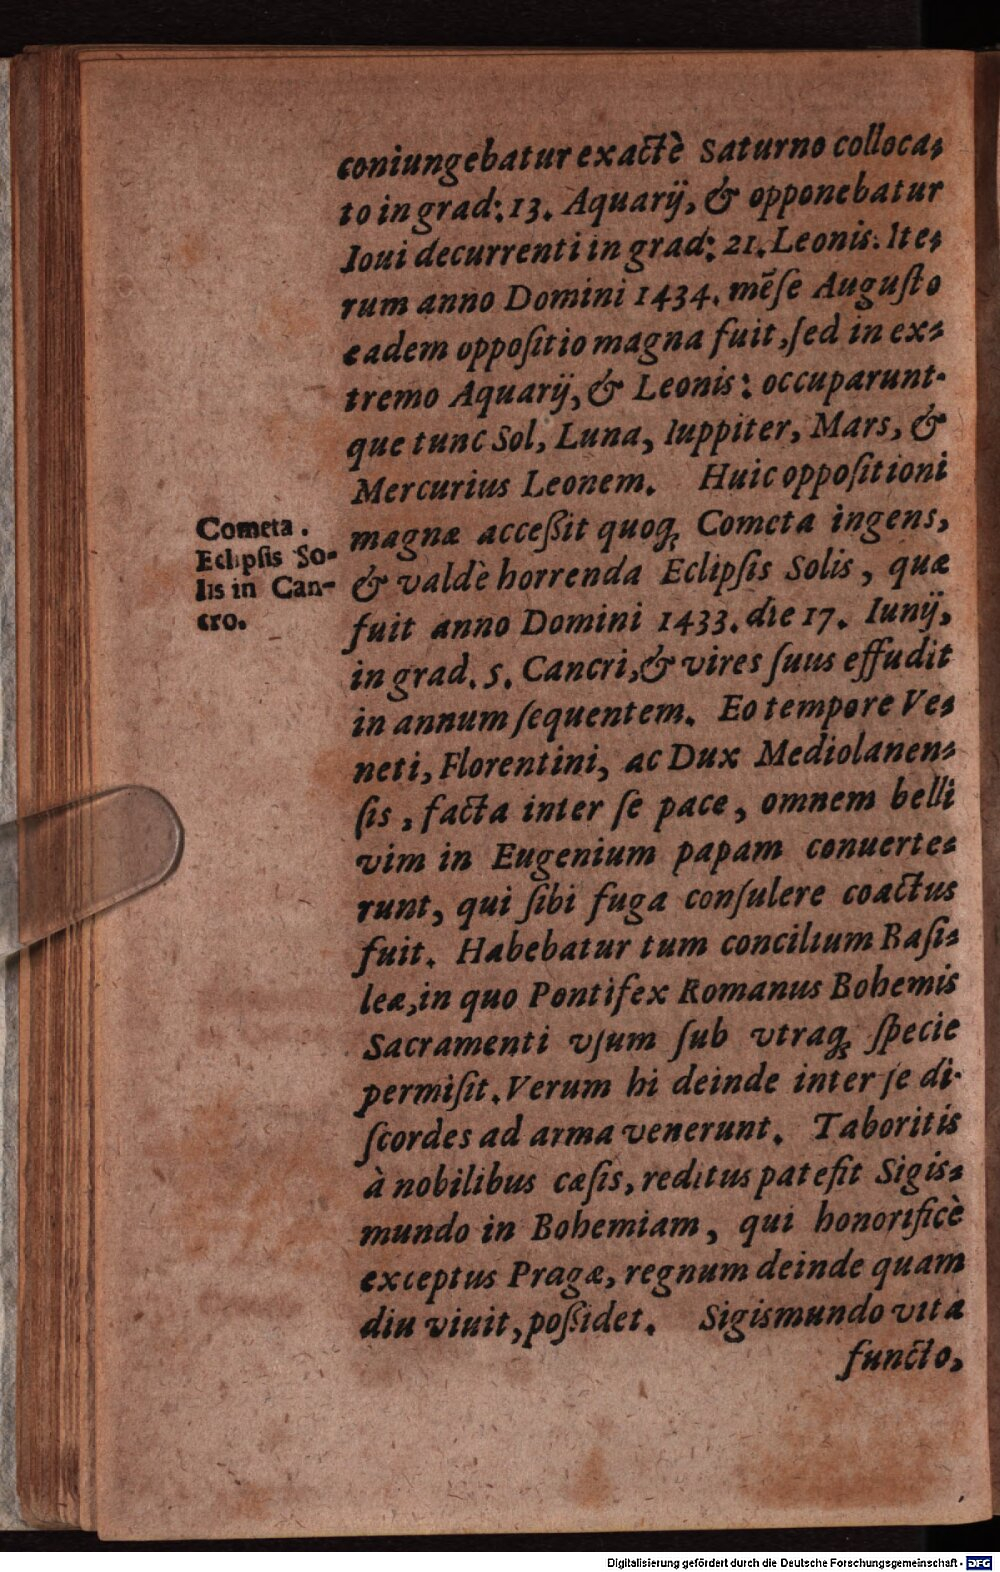 coniungebatur exactè Saturno colloca-
to in grad: 13. Aquarij, & opponebatur
Ioui decurrenti in grad: 21. Leonis. Ite-
rum anno Domini 1434. mēſe Auguſto
eadem oppoſitio magna fuit, ſed in ex-
tremo Aquarij, & Leonis: occuparunt-
que tunc Sol, Luna, Iuppiter, Mars, &
Mercurius Leonem. Huic oppoſitioni
magnæ acceßit quoq; Cometa ingens,
& valdè horrenda Eclipſis Solis, quæ
fuit anno Domini 1433. die 17. Iunij,
in grad. 5. Cancri, & vires ſuus effudit
in annum ſequentem. Eo tempore Ve-
neti, Florentini, ac Dux Mediolanen-
ſis, facta inter ſe pace, omnem belli
vim in Eugenium papam conuerte-
runt, qui ſibi fuga conſulere coactus
fuit. Habebatur tum concilium Baſi-
leæ, in quo Pontifex Romanus Bohemis
Sacramenti vſum ſub vtraq; ſpecie
permiſit. Verum hi deinde inter ſe di-
ſcordes ad arma venerunt. Taboritis
à nobilibus cæſis, reditus patefit Sigis-
mundo in Bohemiam, qui honorificè
exceptus Pragæ, regnum deinde quam
diu viuit, poßidet. Sigismundo vita
functo,
Cometa.
Eclipsis So-
lis in Can-
cro.
Digitalisierung gefördert durch die Deutsche Forschungsgemeinschaft - DFG